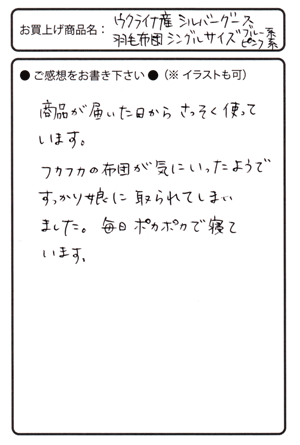 お買上げ商品名： ウクライナ産 シルバーグース
羽毛布団 シングルサイズ ブルー系 ピンク系
● ご感想をお書き下さい ●（※ イラストも可）
商品が届いた日から さっそく使って
います。
フカフカの布団が気にいったようで
すっかり娘に 取られてしまい
ました。毎日ポカポカで寝て
います。